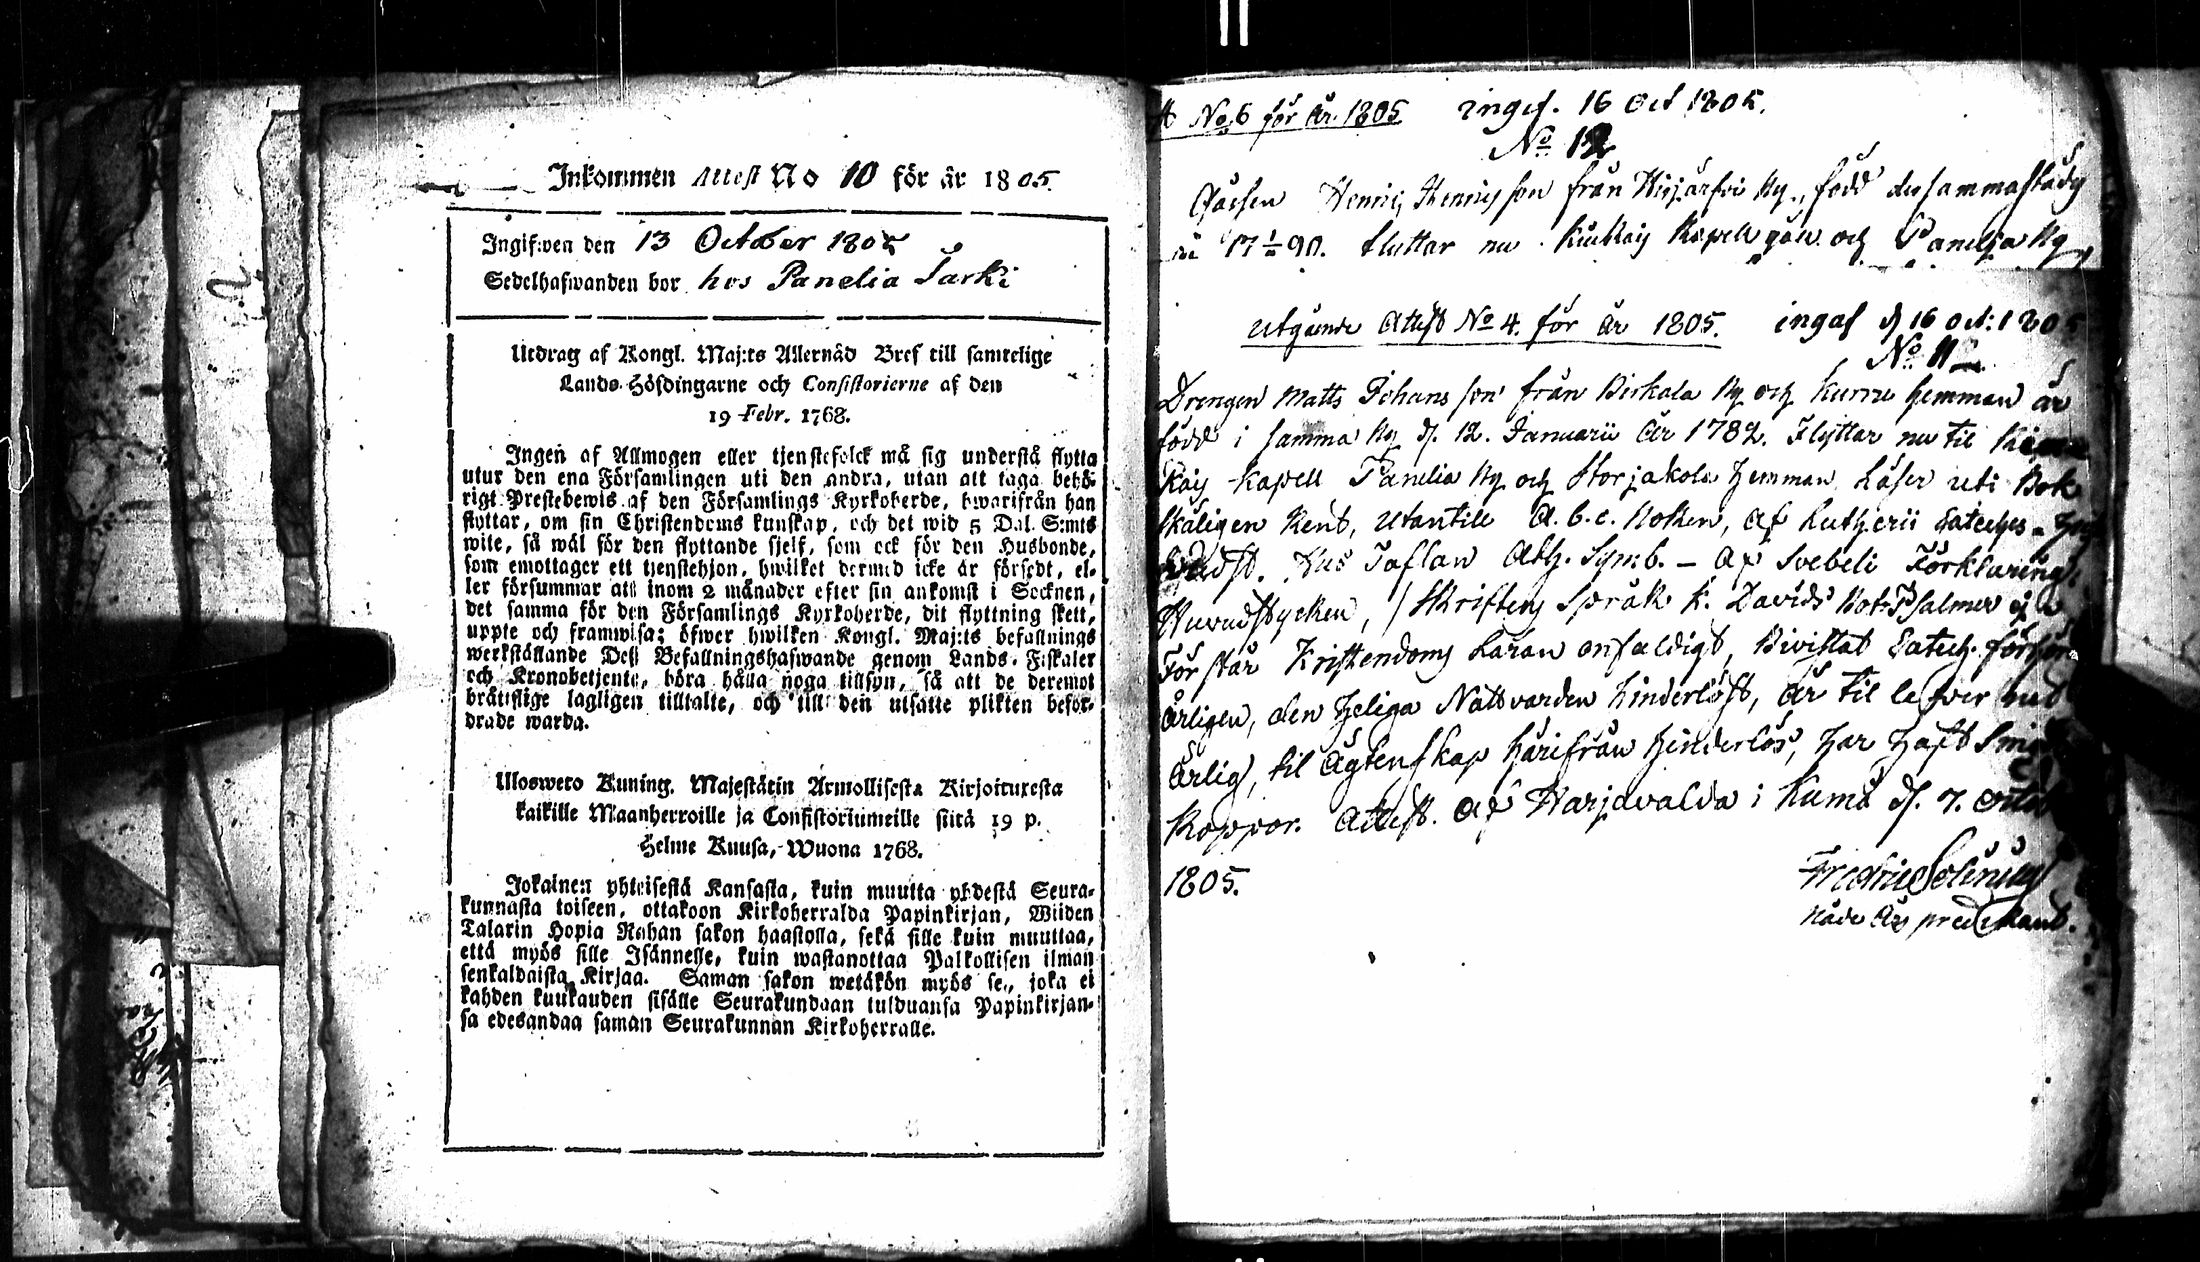 Inkommen Attest No 10 för år 1805.
Ingifwen den 13 October 1805
Sedelhafwanden bor hos Panelia Sarki
Utdrag af Kongl. Maj:ts Allernåd Bref till samtelige
Lands-Höfdingarne och Consistorierne af den
19 Febr. 1768.
Ingen af Allmogen eller tjenstefolck må sig understå flytta
utur den ena Församlingen uti den andra, utan att taga behö-
rigt Prestebewis af den Församlings Kyrkoherde, hwarifrån han
flyttar, om sin Christendoms kunskap, och det wid 5 Dal. S:mts
wite, så wäl för den flyttande sjelf, som ock för den Husbonde,
som emottager ett tjenstehjon, hwilket dermed icke är försedt, el-
ler försummar att inom 2 månader efter sin ankomst i Socknen,
det samma för den Församlings Kyrkoherde, dit flyttning skett,
uppte och framwisa; öfwer hwilken Kongl. Maj:ts befallnings
werkställande Dess Befallningshafwande genom Lands-Fiskaler
och Kronobetjente, böra hålla noga tillsyn, så att de deremot
brättslige lagligen tilltalte, och till den utsatte plikten beför-
drade warda.
Uloswero Kuning. Majestätin Armollisesta Kirjoituxesta
kaikille Maanherroille ja Consistoriumeille siitä 19 p.
Helme Kuusa, Wuona 1768.
Jokainen yhteisestä Kansasta, kuin muutta yhdestä Seura-
kunnasta toiseen, ottakoon Kirkoherralda Papinkirjan, Wiiden
Talarin Hopia Rahan sakon haastolla, sekä sille kuin muuttaa,
että myös sille Isännelle, kuin wastanottaa Palkollisen ilman
senkaldaista Kirjaa. Saman sakon wetäkön myös se, joka ei
kahden kuukauden sisälle Seurakundaan tulduansa Papinkirjan-
sa edesandaa saman Seurakunnan Kirkoherralle.
No 6 för År 1805 ingif. 16 Oct 1805.
No 12
Gåssen Henric Henricsson från By, född dersammastädes
17 1/ 90. fluttar nu Kapell och Panelia By
utgående Attest No 4. för År 1805. ingaf d 16 oct: 1805
No 11
Drengen Matts Johansson från Birkala By och hemman är
född i samma By d. 12. Januarii År 1782. Flyttar nu til
Kapell Panelia By och Storjakola hemman Läser uti Bok
skäligen Rent, utantill A. b. c. Boken, Af Lutherii Cateches
Hus Taflan Ath. Symb. - Af Svebeli Förklaring
Huvudstycken, Skriftens Språk K. Davids Bot-Psalmer
Förstår Kristendoms Läran enfaldigt, Bivistat Catech. förhör
Årligen, den heliga Nattvarden hinderlöst, Är til lefver
Ärlig, til Ägtenskap härifrån hinderlös, har haft
Koppor. Attest. Af Harjavalda i Kumå d. 7.
1805.
Fredric